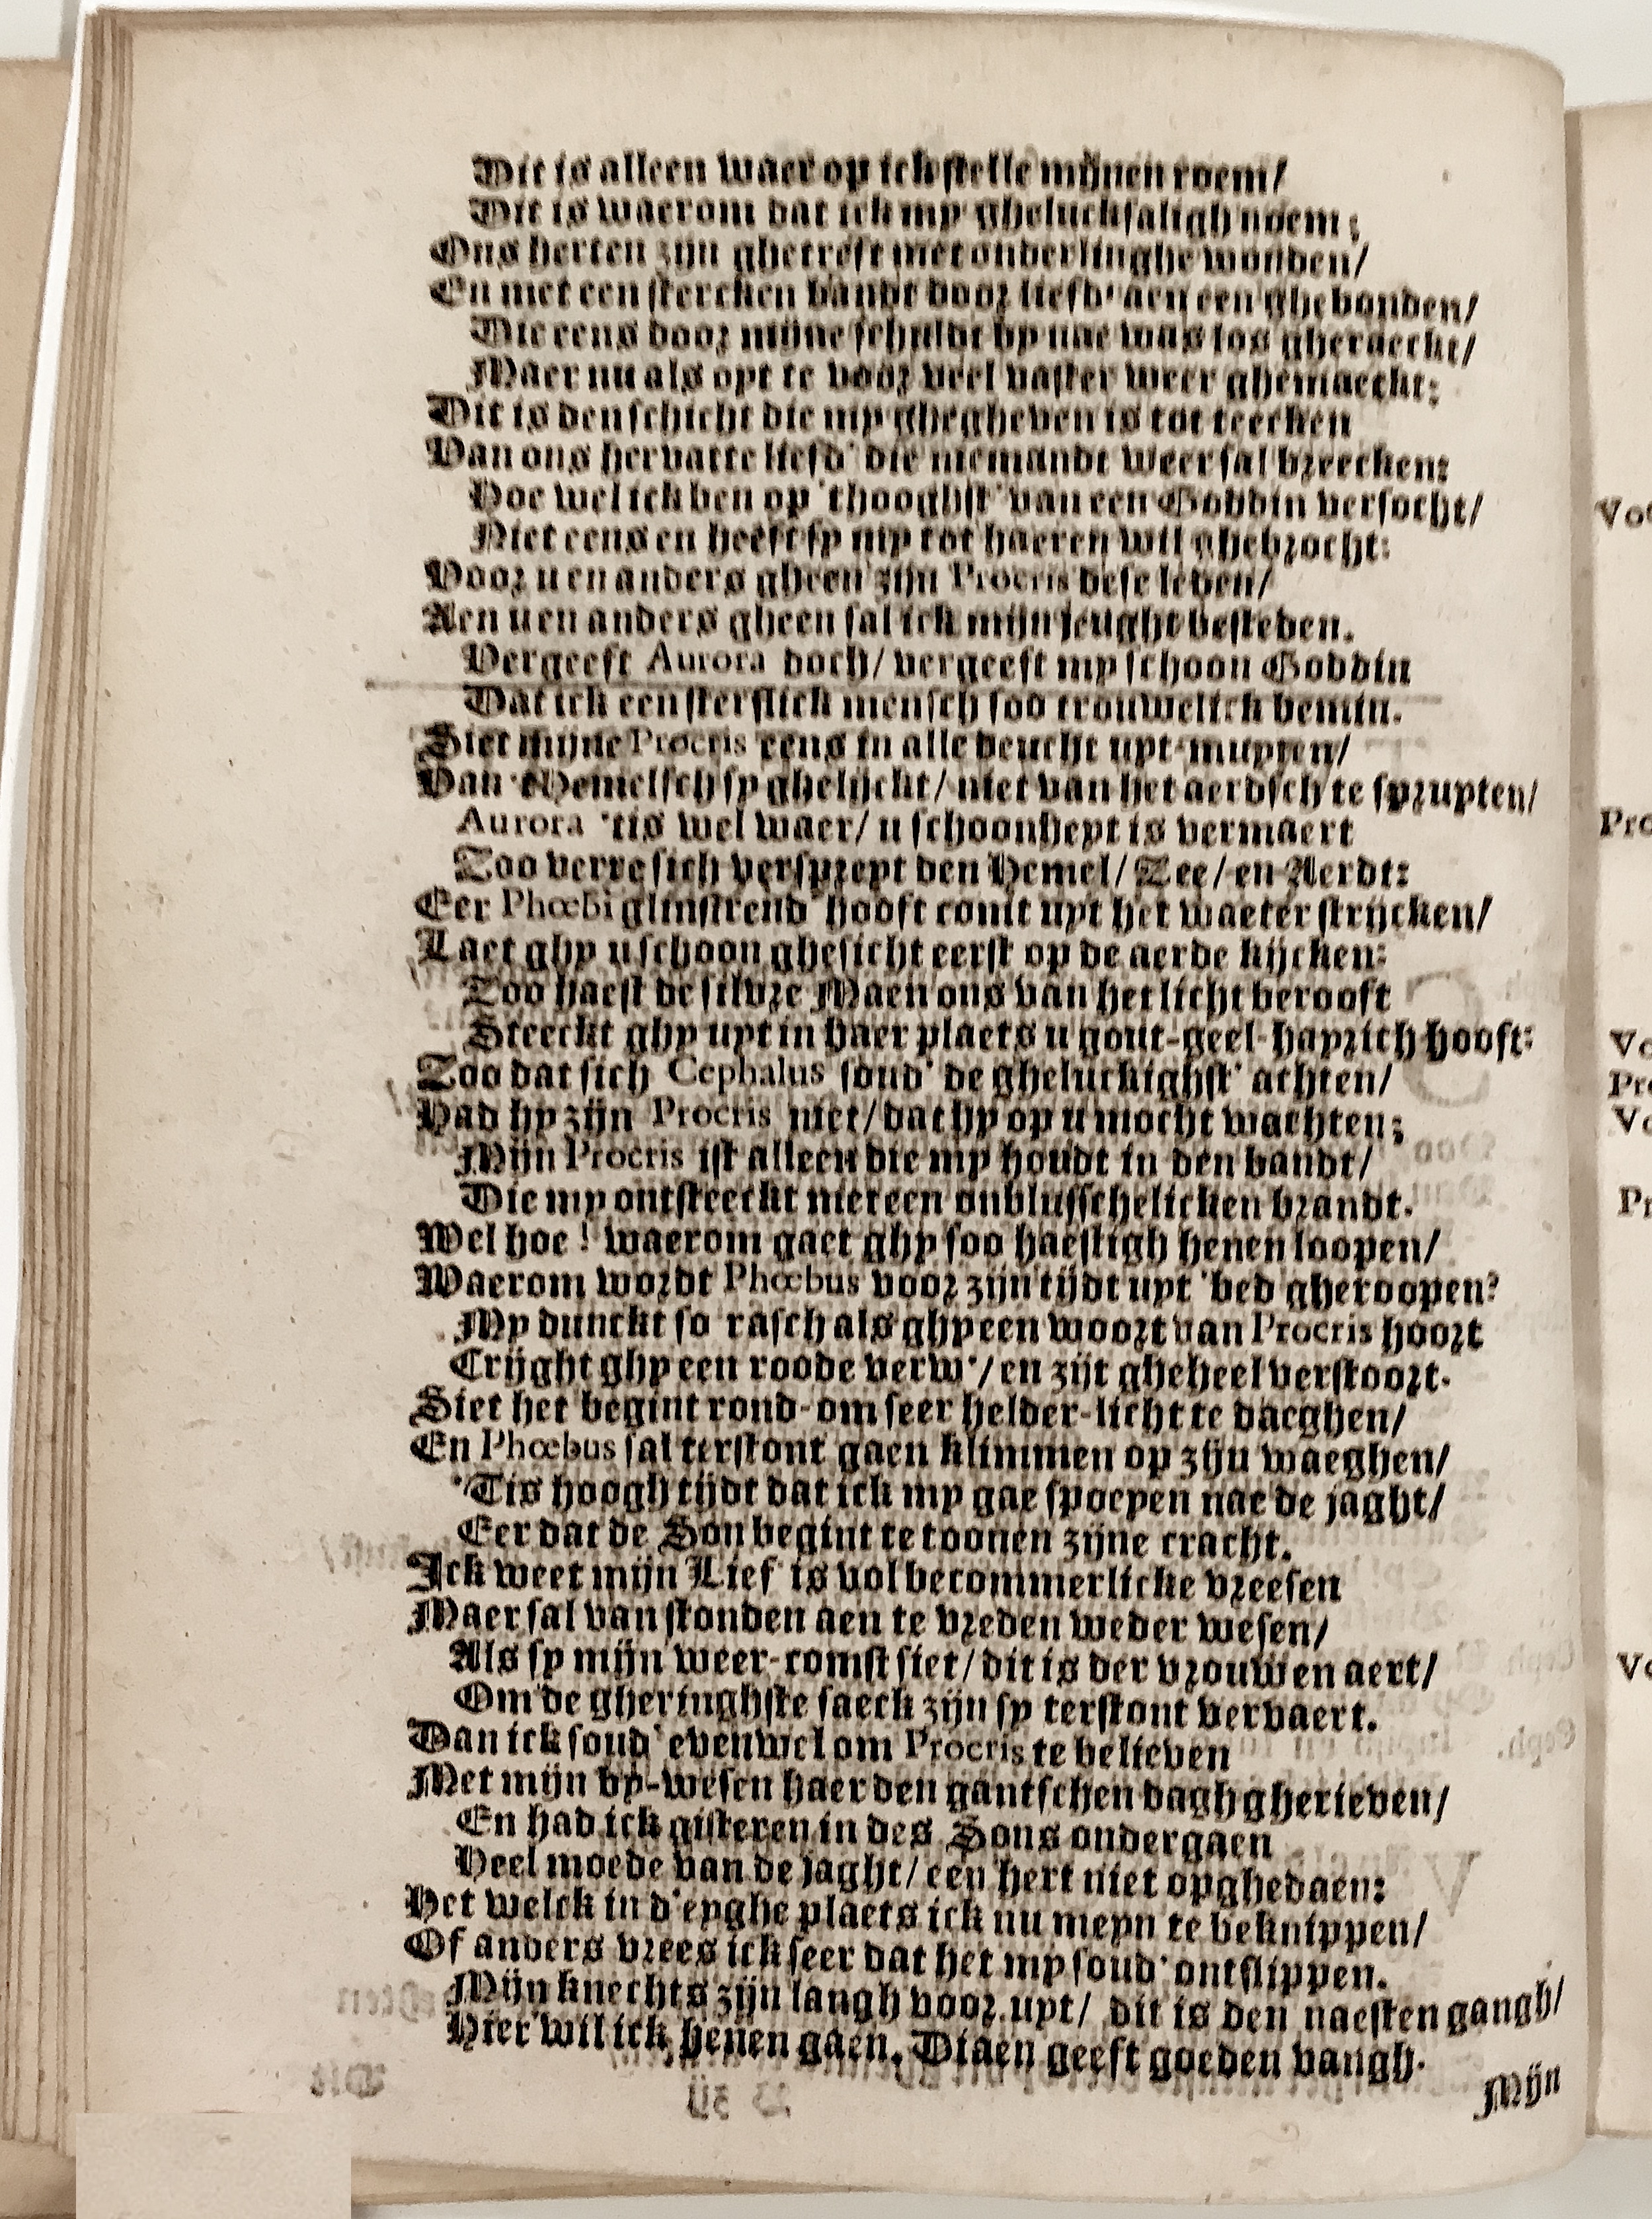 Dit is alleen waer op ick stelle mijnen roem/
Dit is waerom dat ick my ghelucksaligh noem;
Ons herten zijn ghetreft met onderlinghe wonden/
En met een stercken bandt door liefd' aen een ghebonden/
Die eens door mijne schuldt by nae was los gheraeckt/
Maer nu als oyt te voor veel vaster weer ghemaeckt:
Dit is den schicht die my ghegheven is tot teecken
Van ons hervatte liefd' die niemandt weer sal breecken:
Hoe wel ick ben op 'thooghst' van een Goddin versocht/
Niet eens en heeft sy my tot haeren wil ghebrocht:
Voor u en anders gheen zijn Procris dese leden/
Aen u en anders gheen sal ick mijn jeught besteden.
Vergeeft Aurora doch/ vergeeft my schoon Goddin
Dat ick een sterflick mensch soo trouwelick bemin.
Siet mijne Procris eens in alle deucht uyt-muyten/
Van 'tHemelsch sy ghelijckt/ niet van het aerdsch te spruyten/
Aurora 'tis wel waer/ u schoonheyt is vermaert
Soo verre sich verspreyt den Hemel/ Zee/ en Aerdt:
Eer Phœbi glinstrend' hooft comt uyt het waeter strijcken/
Laet ghy u schoon ghesicht eerst op de aerde kijcken:
Soo haest de silvre Maen ons van het licht berooft
Steeckt ghy uyt in haer plaets u gout-geel-hayrich hooft:
Soo dat sich Cephalus soud' de gheluckighst' achten/
Had hy zijn Procris niet/ dat hy op u mocht wachten;
Mijn Procris ist alleen die my houdt in den bandt/
Die my ontsteeckt met een onblusschelicken brandt.
Wel hoe! waerom gaet ghy soo haestigh henen loopen/
Waerom wordt Phœbus voor zijn tijdt uyt 'bed gheroopen?
My dunckt so rasch als ghy een woort van Procris hoort
Crijght ghy een roode verw'/ en zijt gheheel verstoort.
Siet het begint rond-om seer helder-licht te daeghen/
En Phœbus sal terstont gaen klimmen op zijn waeghen/
'Tis hoogh tijdt dat ick my gae spoeyen nae de jaght/
Eer dat de Son begint te toonen zijne cracht.
Ick weet mijn Lief is vol becommerlicke vreesen
Maer sal van stonden aen te vreden weder wesen/
Als sy mijn weer-comst siet/ dit is der vrouwen aert/
Om de gheringhste saeck zijn sy terstont vervaert.
Dan ick soud' evenwel om Procris te believen
Met mijn by-wesen haer den gantschen dagh gherieven/
En had ick gisteren in des Sons ondergaen
Heel moede van de jaght/ een hert niet opghedaen:
Het welck in d'eyghe plaets ick nu meyn te beknippen/
Of anders vrees ick seer dat het my soud' ontslippen.
Mijn knechts zijn langh voor uyt/ dit is den naesten gangh/
Hier wil ick henen gaen. Diaen geeft goeden vangh.
Mijn